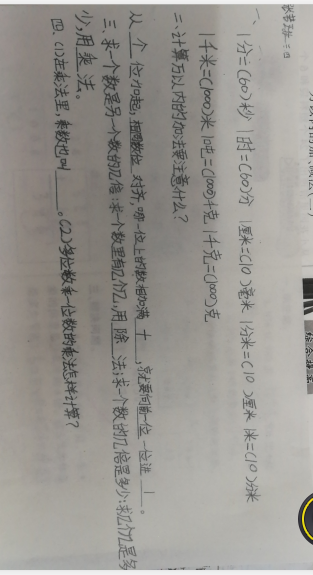 一、1分=(60)秒 1时=(60)分 1厘米=(10)毫米 1分米=(10)厘米 1米=(10)分米
1千米=(1000)米 1吨=(1000)千克 1千克=(1000)克
二、计算万以内的加法要注意什么?
从 个 位加起,相同数位 对齐,哪一位上的数相加满 十 ,就要向前一位 一位进 1 。
三、求一个数是另一个数的几倍:求一个数里有几个几,用 除 法;求一个数的几倍是多少:求几个几是多
少,用 乘 法。
四、(1)在乘法里,乘数也叫____。(2)多位数乘一位数的乘法怎样计算?